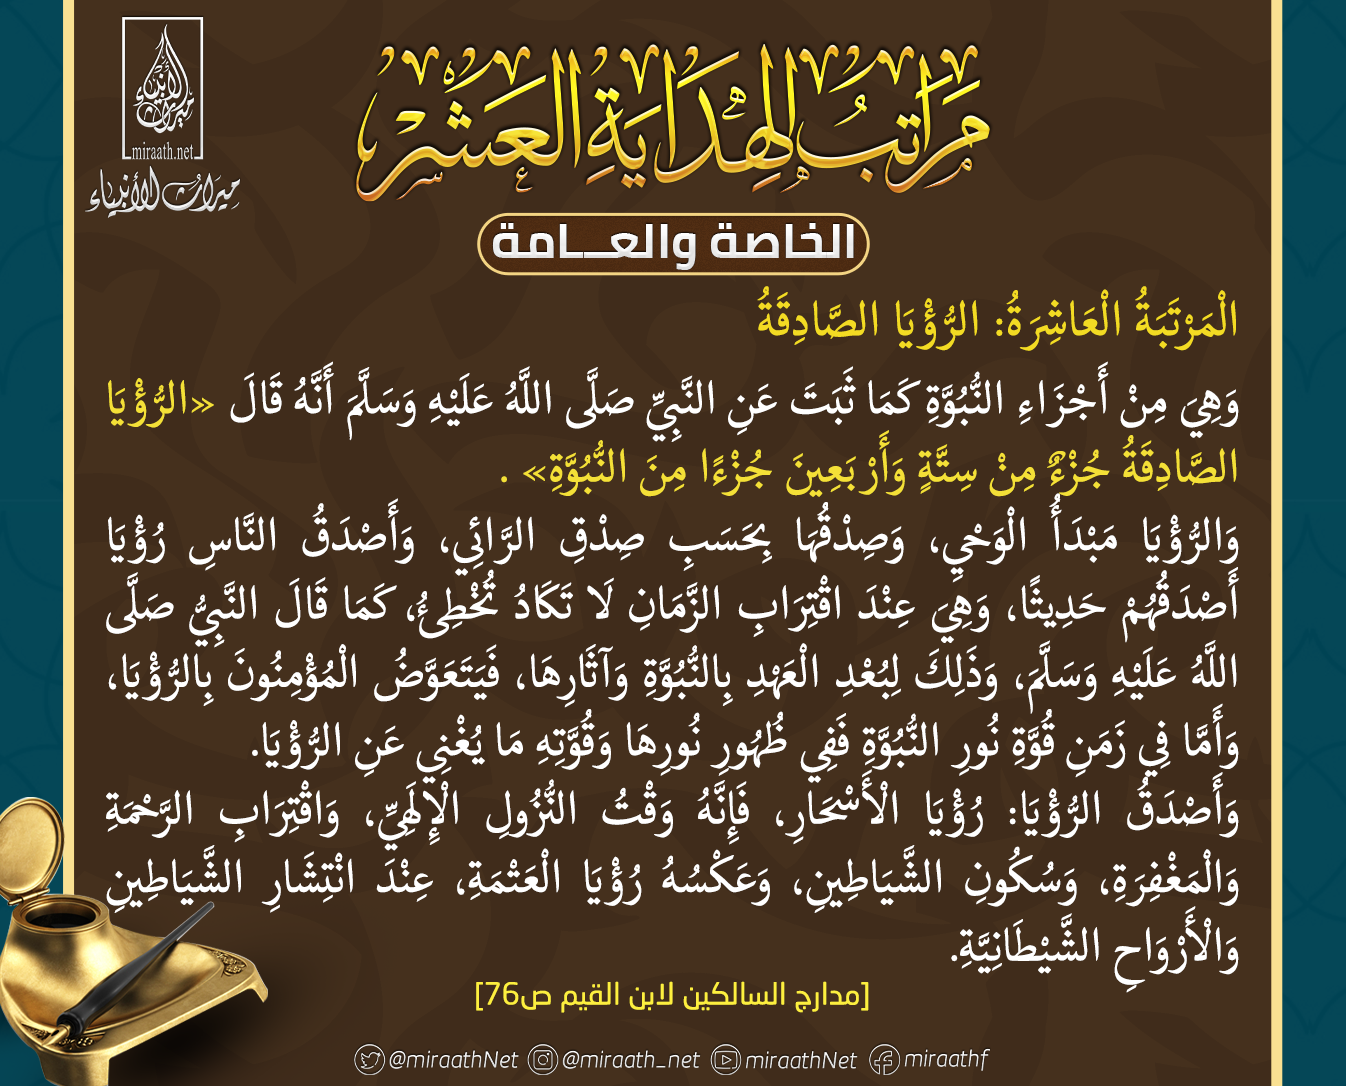 مَرَاتِبُ الهِدَايَةِ العَشْر
miraath.net
ميراث الأنبياء
الخاصة والعـــامة
الْمَرْتَبَةُ الْعَاشِرَةُ: الرُّؤْيَا الصَّادِقَةُ
وَهِيَ مِنْ أَجْزَاءِ النُّبُوَّةِ كَمَا ثَبَتَ عَنِ النَّبِيِّ صَلَّى اللَّهُ عَلَيْهِ وَسَلَّمَ أَنَّهُ قَالَ «الرُّؤْيَا
الصَّادِقَةُ جُزْءٌ مِنْ سِتَّةٍ وَأَرْبَعِينَ جُزْءًا مِنَ النُّبُوَّةِ» .
وَالرُّؤْيَا مَبْدَأُ الْوَحْيِ، وَصِدْقُهَا بِحَسَبِ صِدْقِ الرَّائِي، وَأَصْدَقُ النَّاسِ رُؤْيَا
أَصْدَقُهُمْ حَدِيثًا، وَهِيَ عِنْدَ اقْتِرَابِ الزَّمَانِ لَا تَكَادُ تُخْطِئُ، كَمَا قَالَ النَّبِيُّ صَلَّى
اللَّهُ عَلَيْهِ وَسَلَّمَ، وَذَلِكَ لِبُعْدِ الْعَهْدِ بِالنُّبُوَّةِ وَآثَارِهَا، فَيَتَعَوَّضُ الْمُؤْمِنُونَ بِالرُّؤْيَا،
وَأَمَّا فِي زَمَنِ قُوَّةِ نُورِ النُّبُوَّةِ فَفِي ظُهُورِ نُورِهَا وَقُوَّتِهِ مَا يُغْنِي عَنِ الرُّؤْيَا.
وَأَصْدَقُ الرُّؤْيَا: رُؤْيَا الْأَسْحَارِ، فَإِنَّهُ وَقْتُ النُّزُولِ الْإِلَهِيِّ، وَاقْتِرَابِ الرَّحْمَةِ
وَالْمَغْفِرَةِ، وَسُكُونِ الشَّيَاطِينِ، وَعَكْسُهُ رُؤْيَا الْعَتْمَةِ، عِنْدَ انْتِشَارِ الشَّيَاطِينِ
وَالْأَرْوَاحِ الشَّيْطَانِيَّةِ.
[مدارج السالكين لابن القيم ص76]
@miraathNet @miraath_net miraathNet miraathf